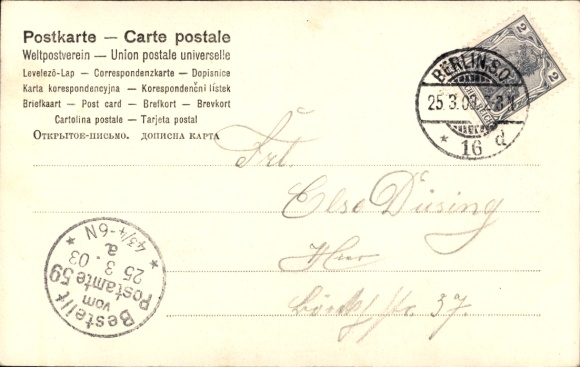 Postkarte — Carte postale
Weltpostverein — Union postale universelle
Levelező-Lap — Correspondenzkarte — Dopisnice
Karta korespondencyjna — Korespondenční lístek
Briefkaart — Post card — Brefkort — Brevkort
Cartolina postale — Tarjeta postal
Открытое-письмо. дописна карта
2
2
BERLIN, S.O.
25.3.03
* 16 d
Frl.
Else Düsing
Hier
str. 37.
Bestellt
vom
Postamte 59
25 3. 03
a
* 4 3/4-6N *